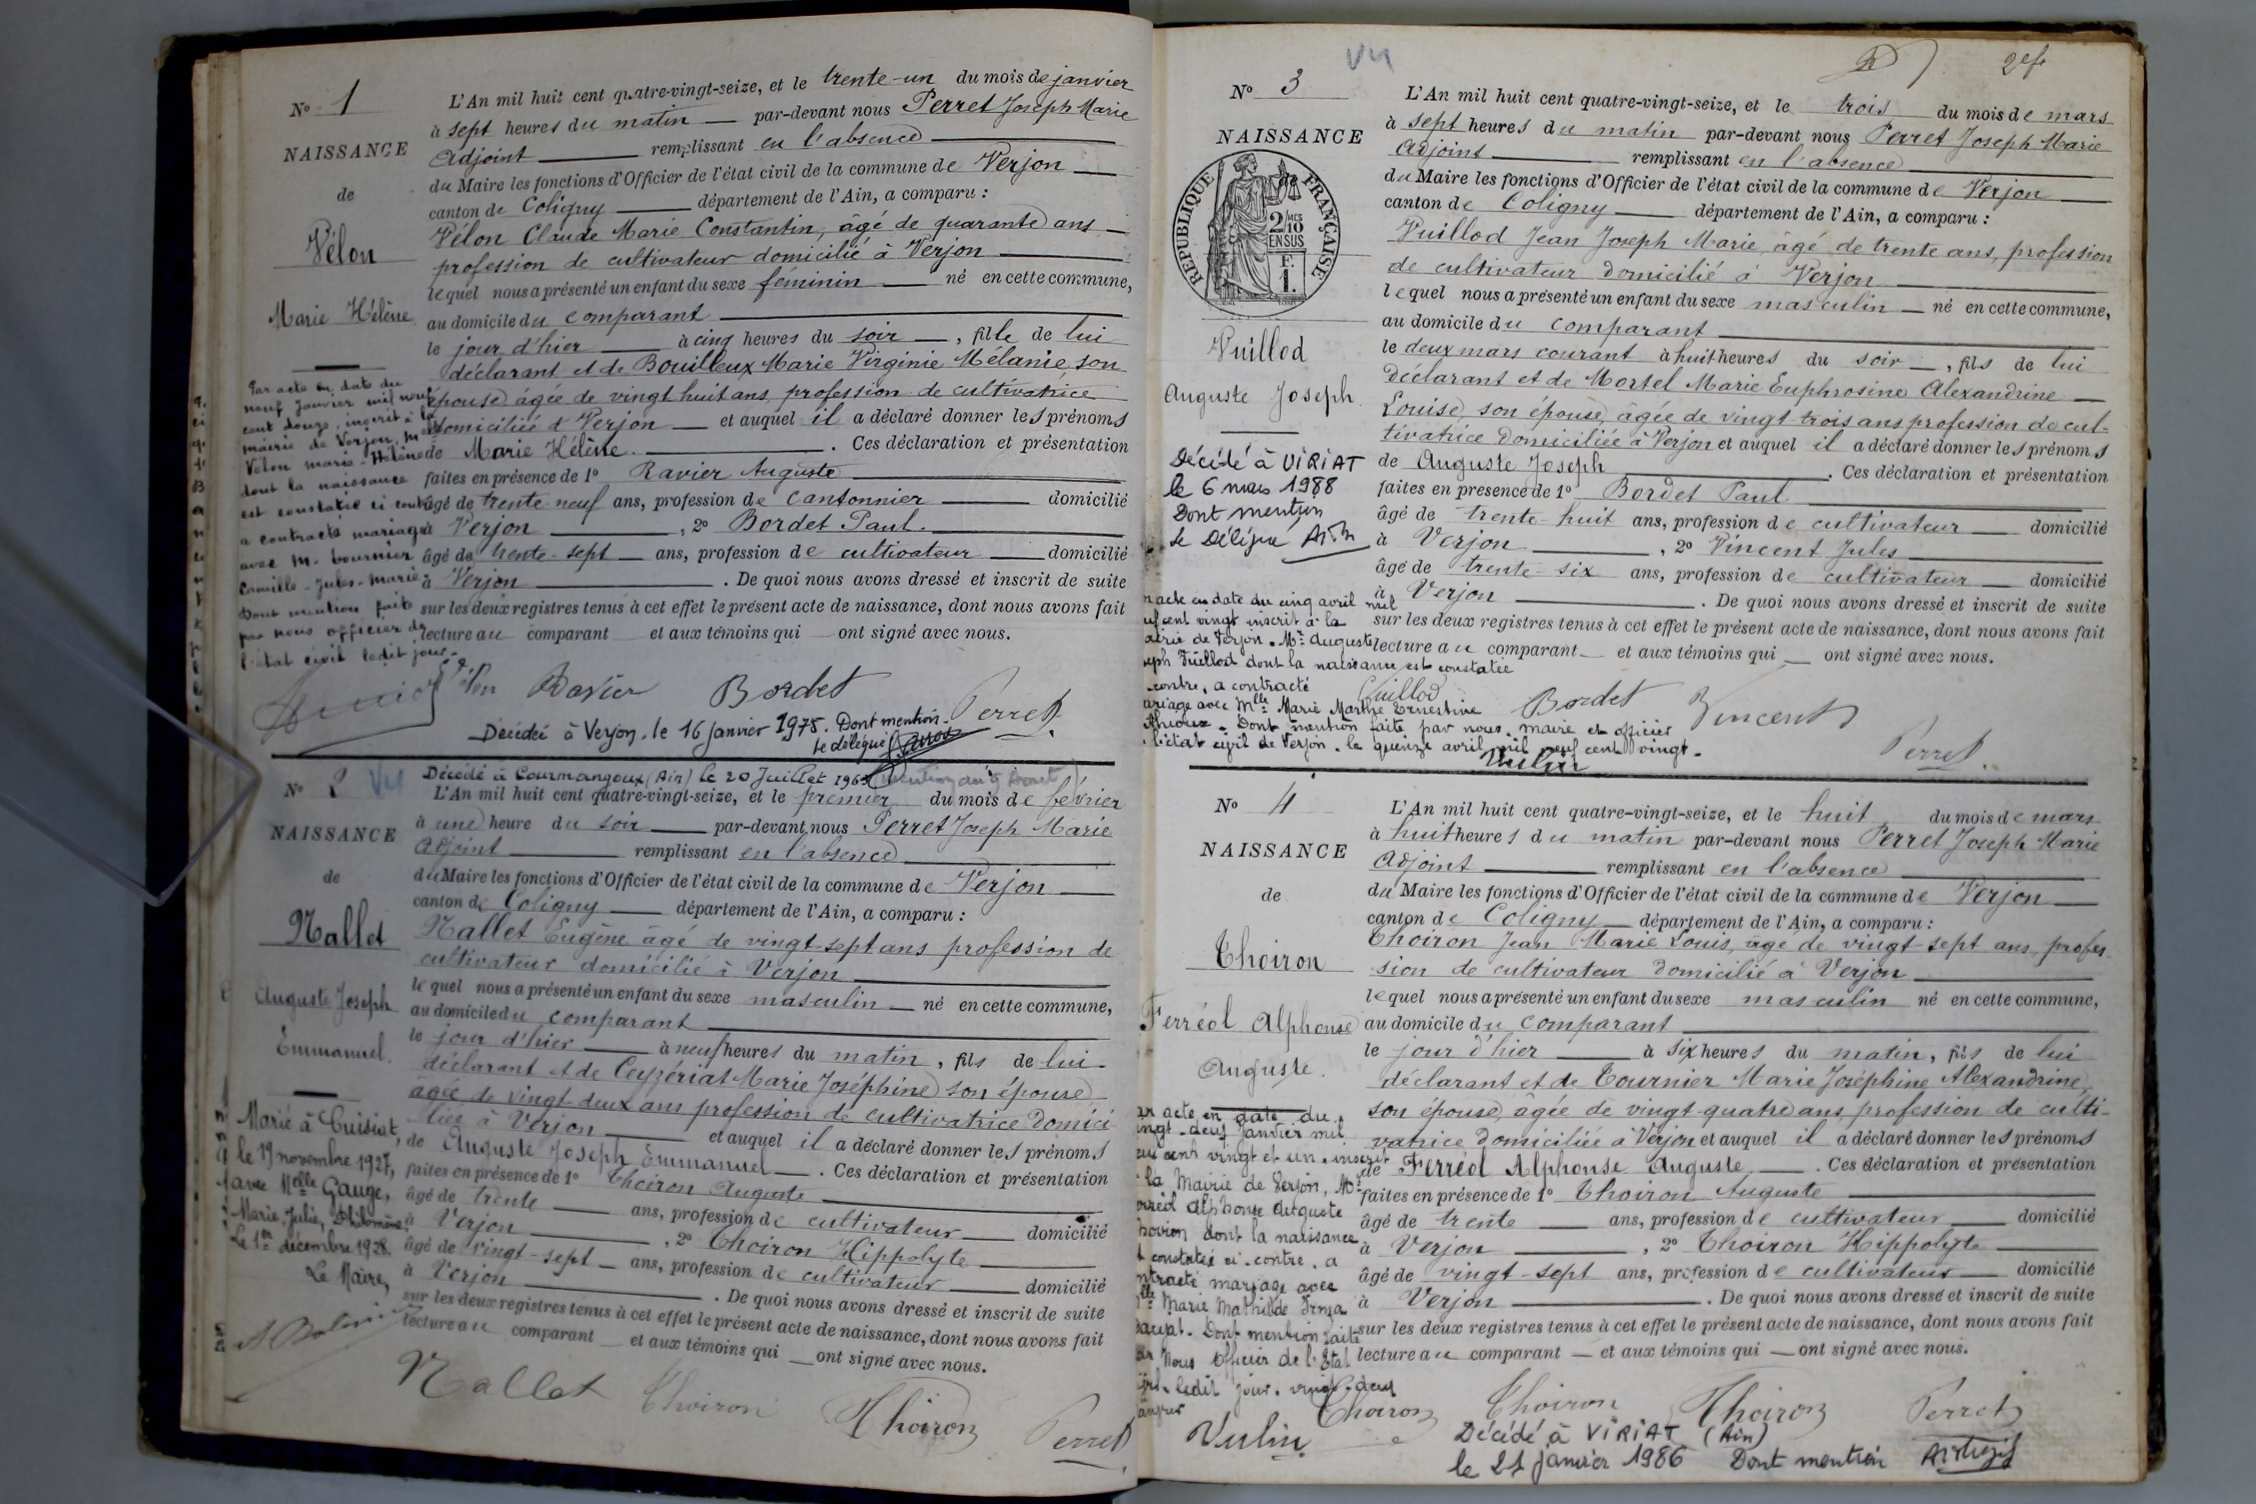 No 1
NAISSANCE
de
Vélon
Marie Hélène
L'An mil huit cent quatre-vingt-seize, et le trente-un du mois de janvier
à sept heures du matin par-devant nous Perret Joseph Marie
Adjoint remplissant en l'absence
du Maire les fonctions d'Officier de l'état civil de la commune de Verjon
canton de Coligny département de l'Ain, a comparu :
Vélon Claude Marie Constantin, âgé de quarante ans
profession de cultivateur domicilié à Verjon
lequel nous a présenté un enfant du sexe féminin né en cette commune,
au domicile du comparant
le jour d'hier à cinq heures du soir, fille de lui
déclarant et de Bouilleux Marie Virginie Mélanie son
épouse âgée de vingt huit ans profession de cultivatrice
domiciliée à Verjon et auquel il a déclaré donner les prénoms
de Marie Hélène. Ces déclaration et présentation
faites en présence de 1° Ravier Auguste
âgé de trente neuf ans, profession de cantonnier domicilié
à Verjon, 2° Bordet Paul.
âgé de trente-sept ans, profession de cultivateur domicilié
à Verjon. De quoi nous avons dressé et inscrit de suite
sur les deux registres tenus à cet effet le présent acte de naissance, dont nous avons fait
lecture au comparant et aux témoins qui ont signé avec nous.
Par acte en date du
neuf Janvier mil neuf
cent douze, inscrit à la
mairie de Verjon, Melle
Vélon Marie-Hélène
dont la naissance
est constatée ci contre
a contracté mariage
avec M. Cournier
Camille-Jules-Marie
Dont mention faite
par nous officier de
l'état civil ledit jour.
Vélon Ravier Bordet Perret
Décédée à Verjon, le 16 janvier 1975. Dont mention.
Le délégué
No 2 Vu
NAISSANCE
de
Nallet
Auguste Joseph
Emmanuel.
Décédé à Courmangoux (Ain) le 20 Juillet 1963
L'An mil huit cent quatre-vingt-seize, et le premier du mois de février
à une heure du soir par-devant nous Perret Joseph Marie
Adjoint remplissant en l'absence
du Maire les fonctions d'Officier de l'état civil de la commune de Verjon
canton de Coligny département de l'Ain, a comparu :
Nallet Eugène âgé de vingt-sept ans profession de
cultivateur domicilié à Verjon
lequel nous a présenté un enfant du sexe masculin né en cette commune,
au domicile du comparant
le jour d'hier à neuf heures du matin, fils de lui
déclarant et de Ceyzériat Marie Joséphine son épouse
âgée de vingt deux ans profession de cultivatrice domici
liée à Verjon et auquel il a déclaré donner les prénoms
de Auguste Joseph Emmanuel. Ces déclaration et présentation
faites en présence de 1° Thoiron Auguste
âgé de trente ans, profession de cultivateur domicilié
à Verjon, 2° Thoiron Hippolyte
âgé de vingt-sept ans, profession de cultivateur domicilié
à Verjon. De quoi nous avons dressé et inscrit de suite
sur les deux registres tenus à cet effet le présent acte de naissance, dont nous avons fait
lecture au comparant et aux témoins qui ont signé avec nous.
Marié à Cuisiat,
le 19 novembre 1927,
avec Melle Gauge,
Marie, Julie, Philomène
Le 1er décembre 1928.
Le Maire,
Nallet Thoiron Thoiron Perret
Vu
2e f.
No 3
NAISSANCE
de
REPUBLIQUE FRANÇAISE
2/10 EN SUS
F. 1.
Vuillod
Auguste Joseph.
L'An mil huit cent quatre-vingt-seize, et le trois du mois de mars
à sept heures du matin par-devant nous Perret Joseph Marie
Adjoint remplissant en l'absence
du Maire les fonctions d'Officier de l'état civil de la commune de Verjon
canton de Coligny département de l'Ain, a comparu :
Vuillod Jean Joseph Marie âgé de trente ans, profession
de cultivateur domicilié à Verjon
lequel nous a présenté un enfant du sexe masculin né en cette commune,
au domicile du comparant
le deux mars courant à huit heures du soir, fils de lui
déclarant et de Mortel Marie Euphrosine Alexandrine
Louise son épouse, âgée de vingt trois ans profession de cul-
tivatrice domiciliée à Verjon et auquel il a déclaré donner les prénoms
de Auguste Joseph. Ces déclaration et présentation
faites en présence de 1° Bordet Paul
âgé de trente-huit ans, profession de cultivateur domicilié
à Verjon, 2° Vincent Jules
âgé de trente-six ans, profession de cultivateur domicilié
à Verjon. De quoi nous avons dressé et inscrit de suite
sur les deux registres tenus à cet effet le présent acte de naissance, dont nous avons fait
lecture au comparant et aux témoins qui ont signé avec nous.
Décédé à VIRIAT
le 6 mars 1988
Dont mention
Le Délégué
acte en date du cinq avril mil
cent vingt inscrit à la
de Verjon. Mr Auguste
Vuillod dont la naissance est constatée
contre, a contracté
avec Mlle Marie Marthe Ernestine
Dont mention faite par nous, maire et officier
l'état civil de Verjon. le quinze avril mil neuf cent vingt.
Vuillod Bordet Vincent Perret
Vulin
No 4
NAISSANCE
de
Thoiron
Ferréol Alphonse
Auguste.
L'An mil huit cent quatre-vingt-seize, et le huit du mois de mars
à huit heures du matin par-devant nous Perret Joseph Marie
Adjoint remplissant en l'absence
du Maire les fonctions d'Officier de l'état civil de la commune de Verjon
canton de Coligny département de l'Ain, a comparu :
Thoiron Jean Marie Louis, âgé de vingt-sept ans, profes
sion de cultivateur domicilié à Verjon
lequel nous a présenté un enfant du sexe masculin né en cette commune,
au domicile du comparant
le jour d'hier à six heures du matin, fils de lui
déclarant et de Tournier Marie Joséphine Alexandrine,
son épouse, âgée de vingt-quatre ans, profession de culti-
vatrice domiciliée à Verjon et auquel il a déclaré donner les prénoms
de Ferréol Alphonse Auguste. Ces déclaration et présentation
faites en présence de 1° Thoiron Auguste
âgé de trente ans, profession de cultivateur domicilié
à Verjon, 2° Thoiron Hippolyte
âgé de vingt-sept ans, profession de cultivateur domicilié
à Verjon. De quoi nous avons dressé et inscrit de suite
sur les deux registres tenus à cet effet le présent acte de naissance, dont nous avons fait
lecture au comparant et aux témoins qui ont signé avec nous.
acte en date du
deux Janvier mil
cent vingt et un. inscrit
la Mairie de Verjon, Mr
Alphonse Auguste
dont la naissance
constatée ci-contre, a
mariage avec
Marie Mathilde Irma
Dont mention faite
Nous Officier de l'Etat
ledit jour. vingt-deux
Vulin
Thoiron Thoiron Thoiron Perret
Décédé à VIRIAT (Ain)
le 21 janvier 1986 Dont mention